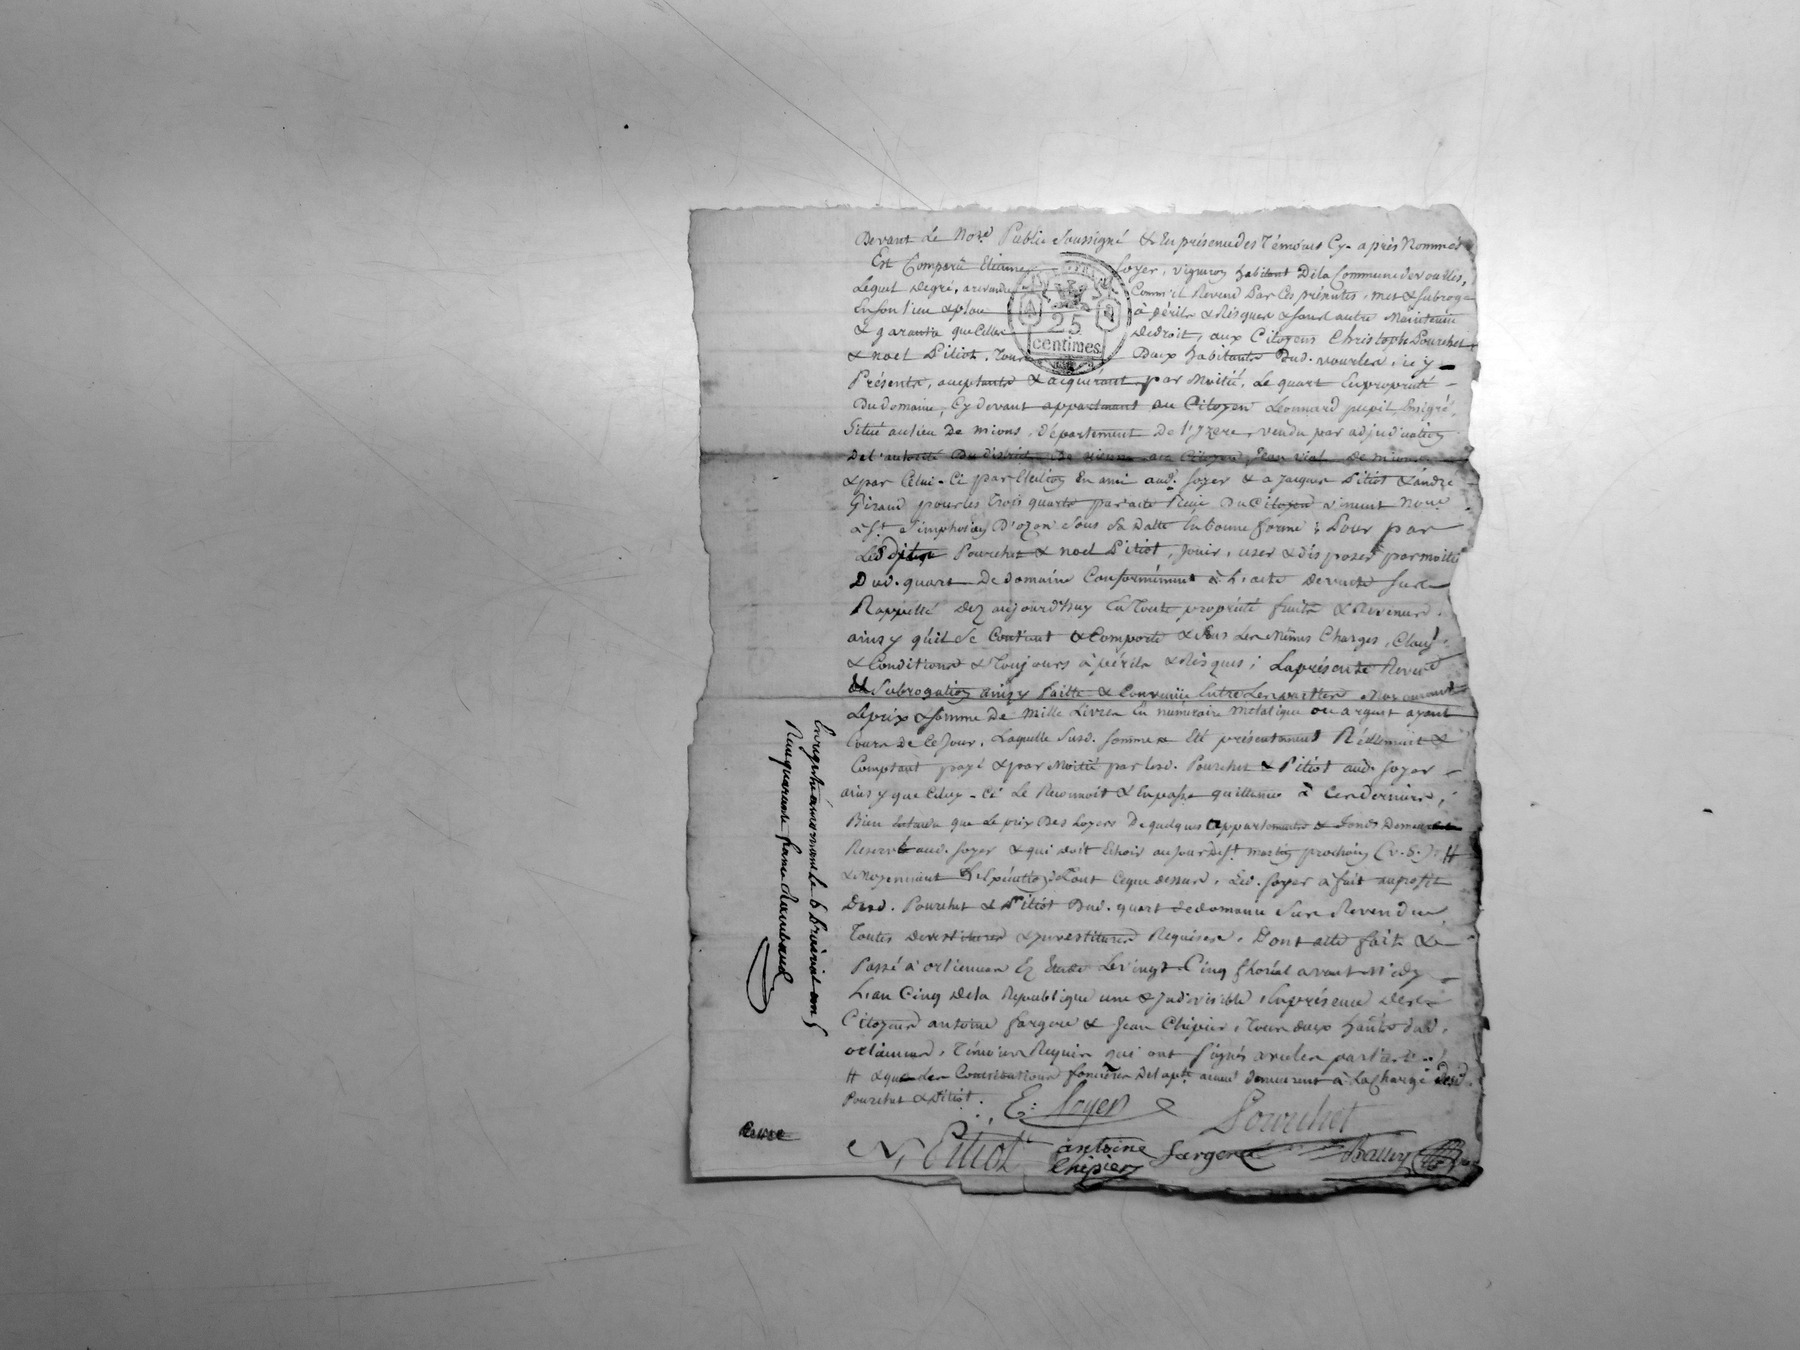 Devant Le No.re Public Soussigné & En présence des Témoins Cy-après Nommés
Est Comparu Etienne Soyer, vigneron habitant De la Commune de vourles,
Lequel de gré, a revendu Comm'il Revend Par Ces présentes, met & subroge
En son lieu & place à périls & Risques & sans autre Maintenue
& garantie que Celle de droit, aux Citoyens Christophe Pourchet
& noel Pitiot, Tous Deux habitants Dud. vourles, icy
25
centimes
Présents, acceptants & acquérant par Moitié, Le quart En propriété
Du domaine, Cy devant appartenant au Citoyen Léonnard pupil, Emigré,
Situé au lieu De mions, Département De l'Izere, vendu par adjudication
De l'autorité Du district De vienne au Citoyen Jean vial De mions
& par Celui-Ci par Election En ami aud. Soyer & a Jacques Pitiot & andré
Giraud pour les Trois quarts par acte Reçu Du Citoyen Nore
à St. Simphorien D'ozon Sous Sa Datte En bonne forme; Pour par
Lesdits Pourchet & noel Pitiot, Jouir, user & disposer par moitié
Dud. quart De domaine Conformément à L'acte De vente Sus
Rappellé Dez aujourd'huy En Toute propriété fruits & Revenus
ainsy qu'il Se Contient & Comporte & Sous Les Mêmes Charges, Claus.
& Conditions & Toujours à périls & Risques; La présente Revente
& Subrogation ainsy faitte & Convenue Entre Les parties Moyennant
Le prix & somme De Mille Livres En numéraire métalique ou argent ayant
Cours De Ce Jour, Laquelle Susd. somme a Eté présentement Réellement &
Comptant payé & par Moitié par Lesd. Pourchet & Pitiot aud. Soyer
ainsy que Celuy-Ci Le Reconnoit & En passe quittance à Ces Derniers,
Bien Entendu que Le prix Des Loyers De quelques appartements & fonds Demeure
Reservé aud. Soyer & qui doit Echoir au Jour De St. Martin prochain (v. S.) #
& Moyennant L'Expécution de Tout Ceque dessus, Led. Soyer a fait au profit
Desd. Pourchet & Pitiot Dud. quart de domaine Sus Revendu,
Toutes Devestitures & Investitures Requises, Dont acte fait &
Passé à orliennas En Etude Le vingt-Cinq floréal avant Midy
L'an Cinq De la République une & Indivisible, En présence Des
Citoyens antoine fargere & Jean Chipier, Tous deux hants. dud.
orliennas, Témoins Requis qui ont Signés avec les parties.
# & que Les Contributions foncières Demeurent à La Charge Desd.
Pourchet & Pitiot.
E: Soyer Pourchet
N, Pitiot antoine fargere Bailly
Chipier
Enregistré à mornant Le 6 prairial an 5
Reçu quarante francs